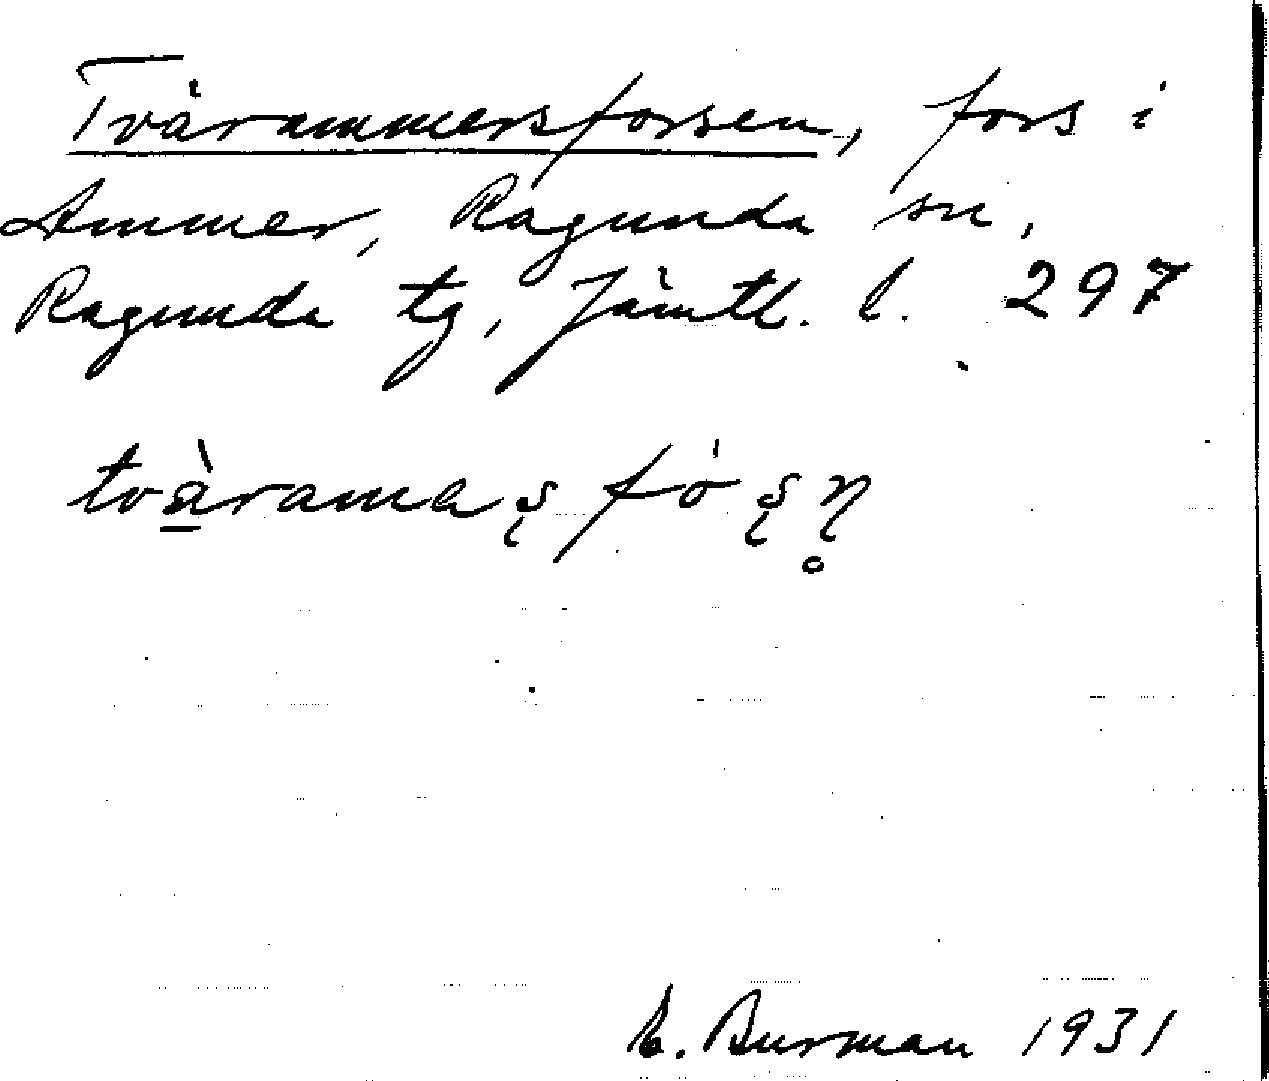 Tvärammersforsen, fors i
Ammer, Ragunda sn,
Ragunda tg, Jämtl. l. 297
tvàramaʂfóʂɳ̥
E. Burman 1931